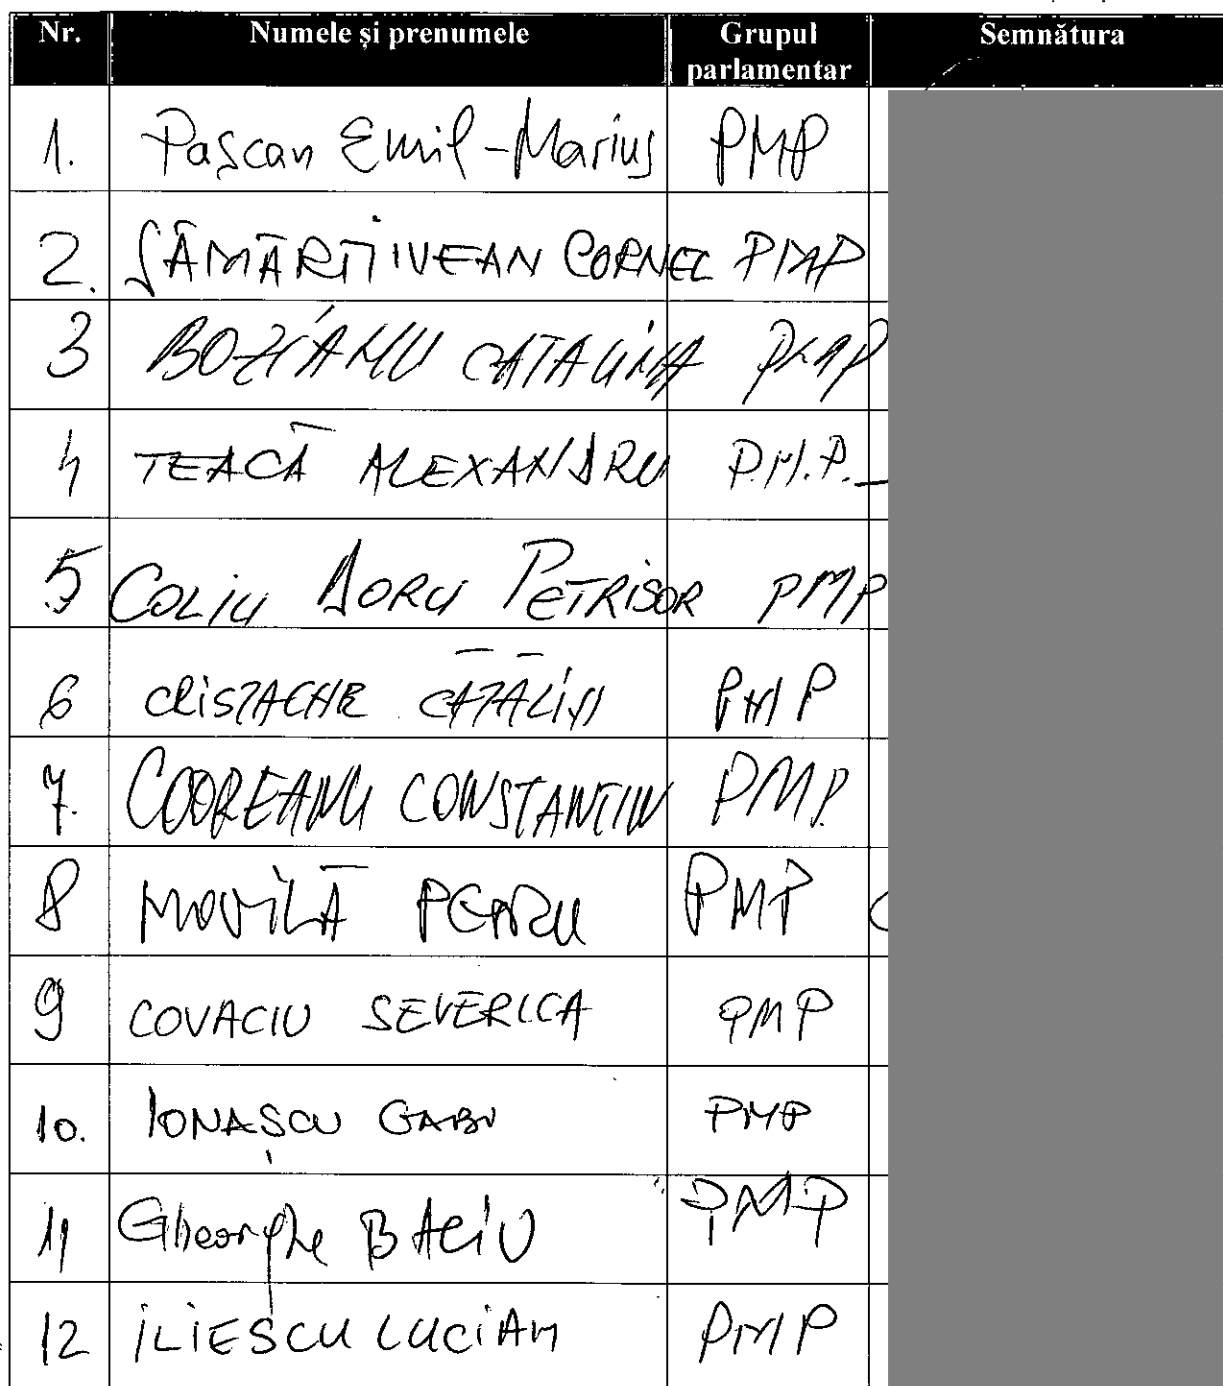 Nr. Numele și prenumele Grupul parlamentar Semnătura
1. Pașcan Emil-Marius PMP
2. SĂMĂRTINEAN CORNEL PMP
3 BOZIANU CATALINA PMP
4 TEACĂ ALEXANDRU P.M.P.
5 COLIU DORU PETRISOR PMP
6 CRISTACHE CĂTĂLIN PMP
7. CODREANU CONSTANTIN PMP.
8 MOVILĂ PETRU PMP
9 COVACIU SEVERICA PMP
10. IONAȘCU GABI PMP
11 Gheorghe BACIU PMP
12 ILIESCU LUCIAN PMP